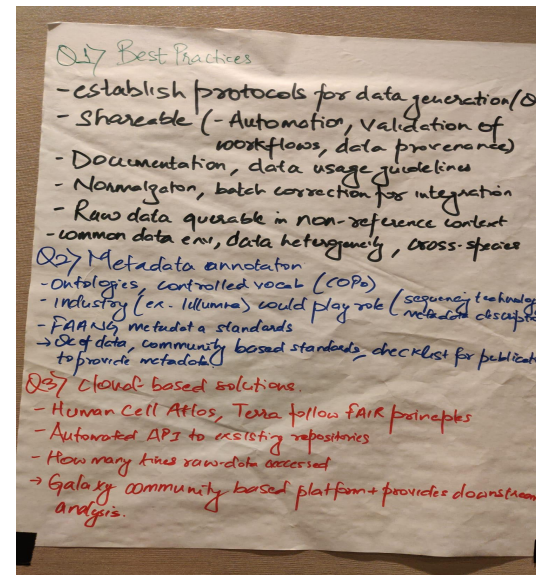 Q1) Best Practices
- establish protocols for data generation/Q
- Shareable (- Automation, Validation of
workflows, data provenance)
- Documentation, data usage guidelines
- Normalization, batch correction for integration
- Raw data querable in non-reference context
- common data env, data heterogeneity, cross-species
Q2) Metadata annotation
- Ontologies, controlled vocab (COPO)
- Industry (ex. Illumina) could play role (sequencing technolog
metadata descript
- FAANG metadata standards
→ QC of data, community based standards, checklist for publicat
to provide metadata
Q3) Cloud based solutions.
- Human Cell Atlas, Terra follow FAIR principles
- Automated API to existing repositories
- How many times raw-data accessed
→ Galaxy community based platform + provides downstream
analysis.